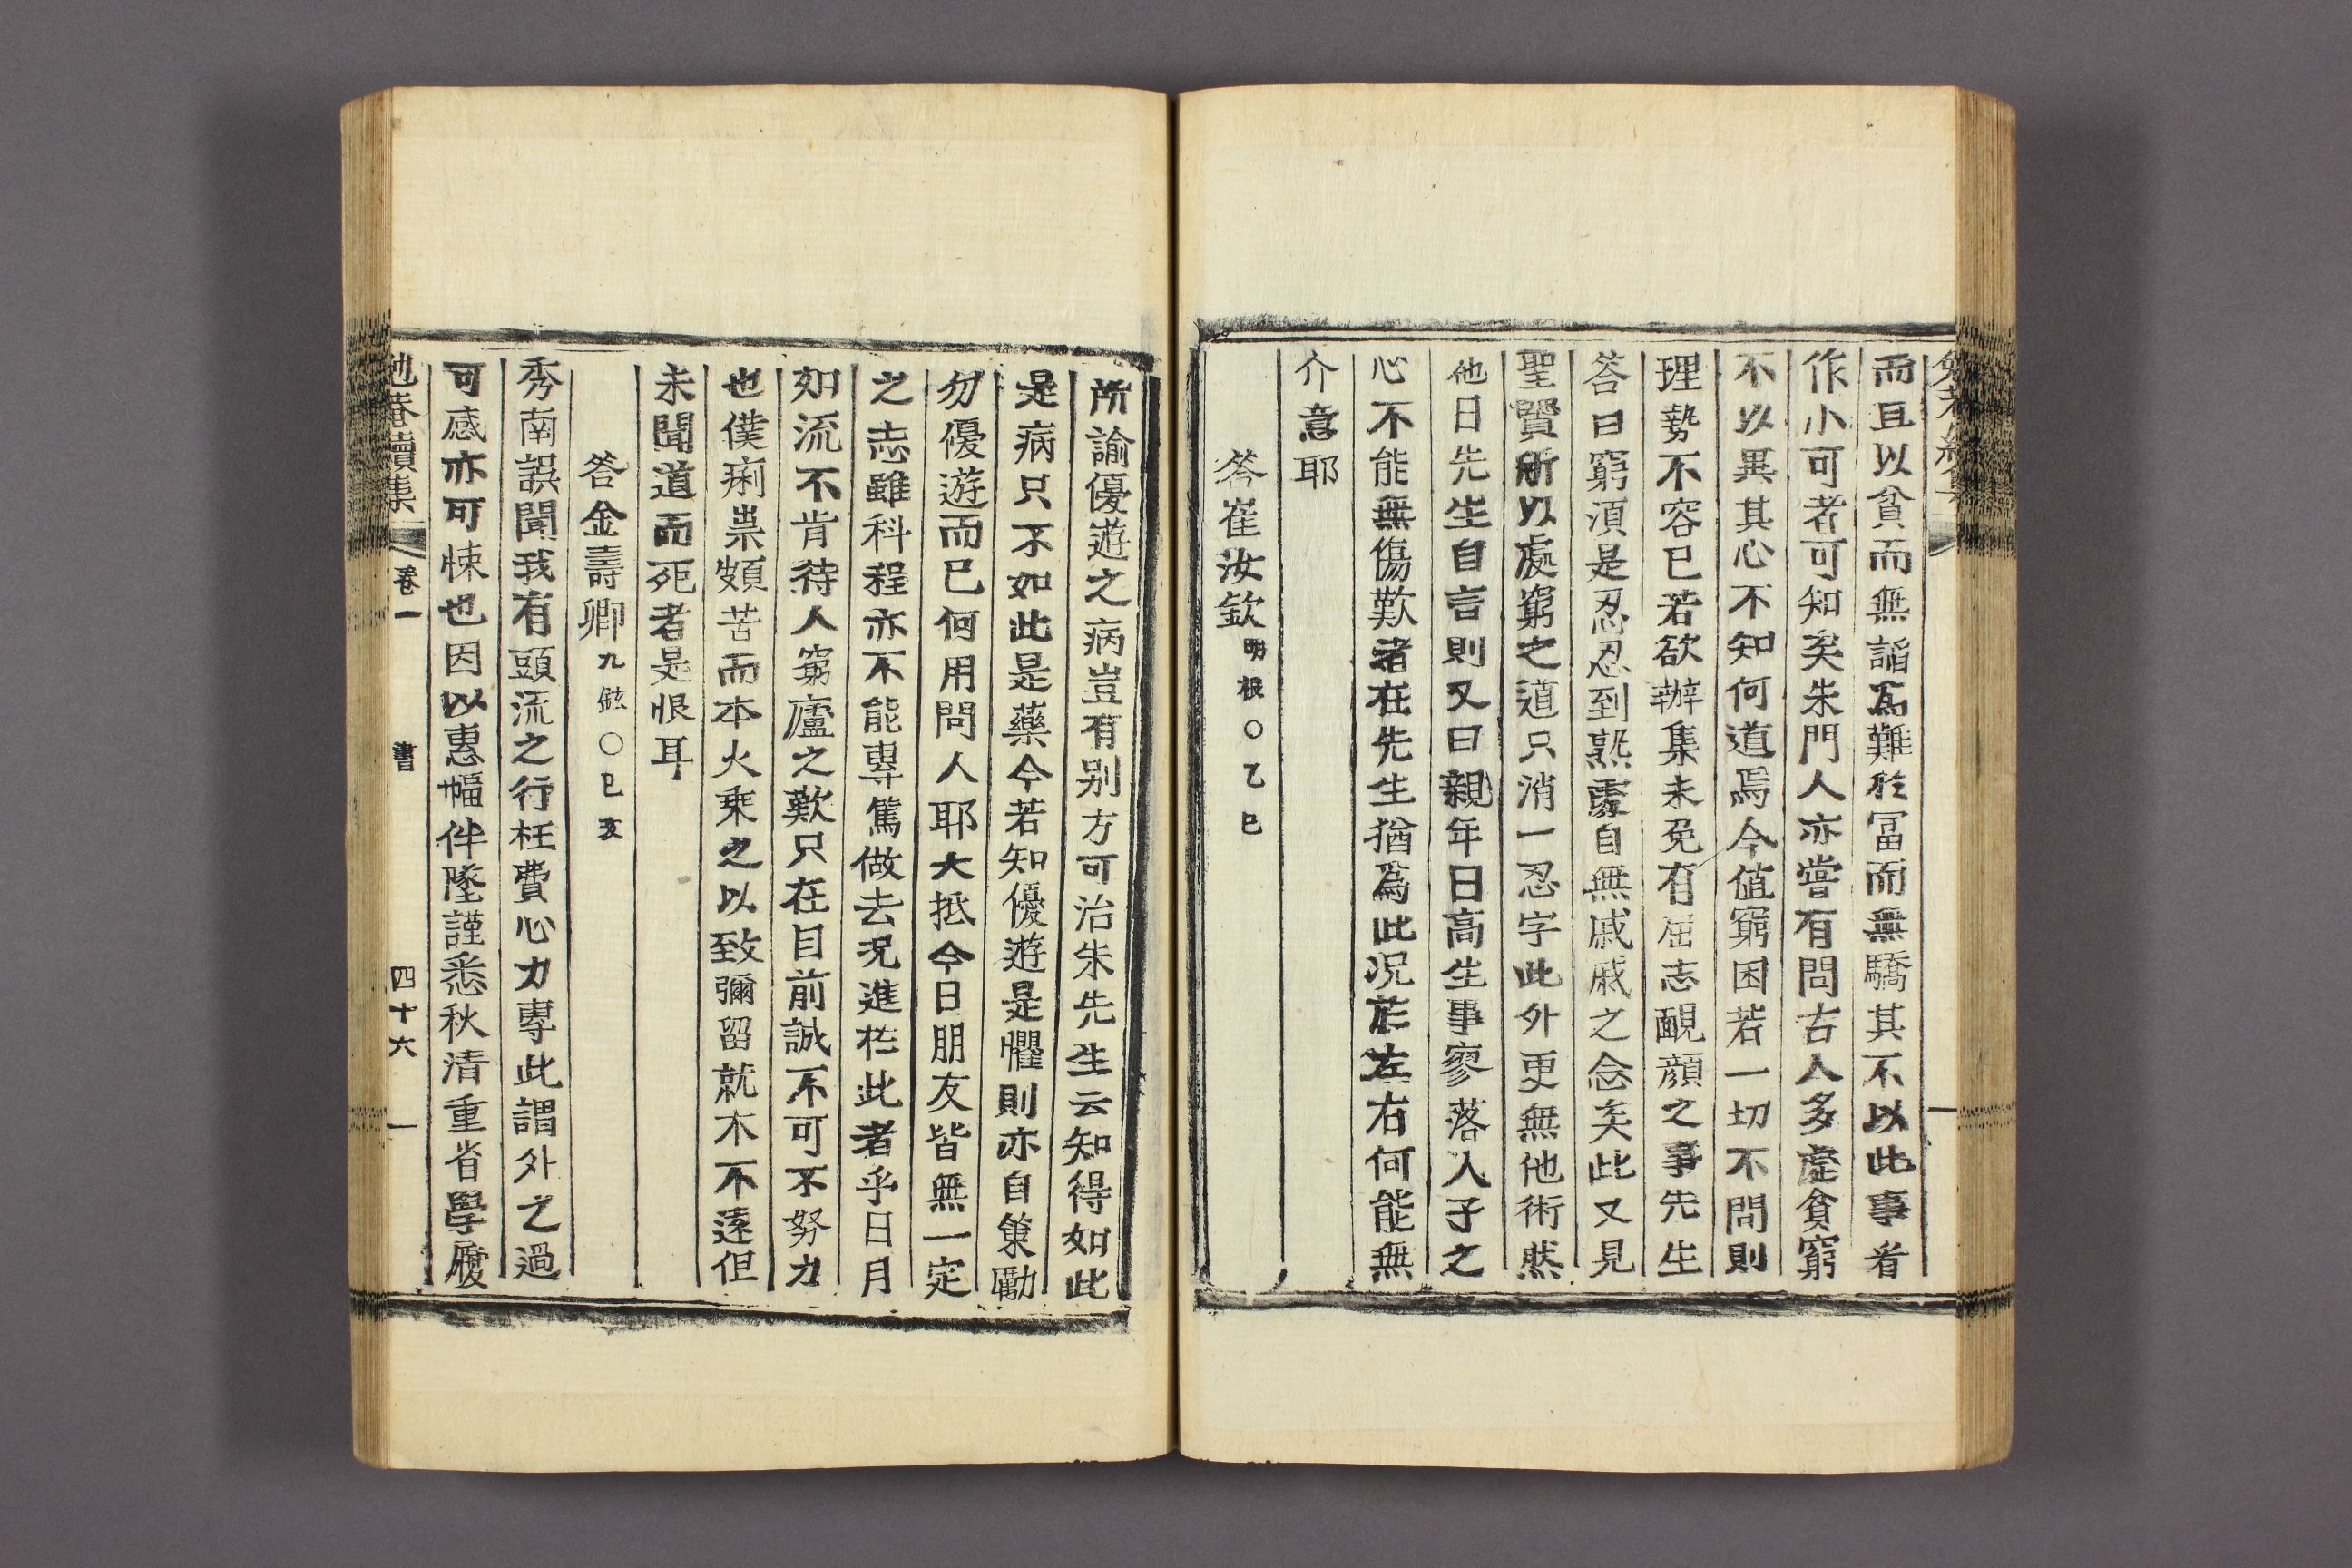 而且以貧而無謟爲難於冨而無驕其不以此事看
作小可者可知矣朱門人亦嘗有問古人多處貧窮
不以異其心不知何道焉今値窮困若一切不問則
理勢不容已若欲辦集未免有屈志靦顔之事先生
答曰窮須是忍忍到熟處自無戚戚之念矣此又見
聖賢所以處窮之道只消一忍字此外更無他術然
他日先生自言則又曰親年日高生事寥落人子之
心不能無傷歎者在先生猶爲此况於左右何能無
介意耶
答崔汝欽明根○乙巳
所諭優遊之病豈有别方可治朱先生云知得如此
是病只不如此是藥今若知優遊是懼則亦自策勵
勿優遊而已何用問人耶大抵今日朋友皆無一定
之志雖科程亦不能專篤做去况進於此者乎日月
如流不肯待人窮廬之歎只在目前誠不可不努力
也僕痢祟頗苦而本火乘之以致彌留就木不遠但
未聞道而死者是恨耳
答金壽卿九鉉○巳亥
秀南誤聞我有頭流之行枉費心力專此謂外之過
可感亦可悚也因以惠幅伴墜謹悉秋清重省學履
續集
卷一
書
四十六